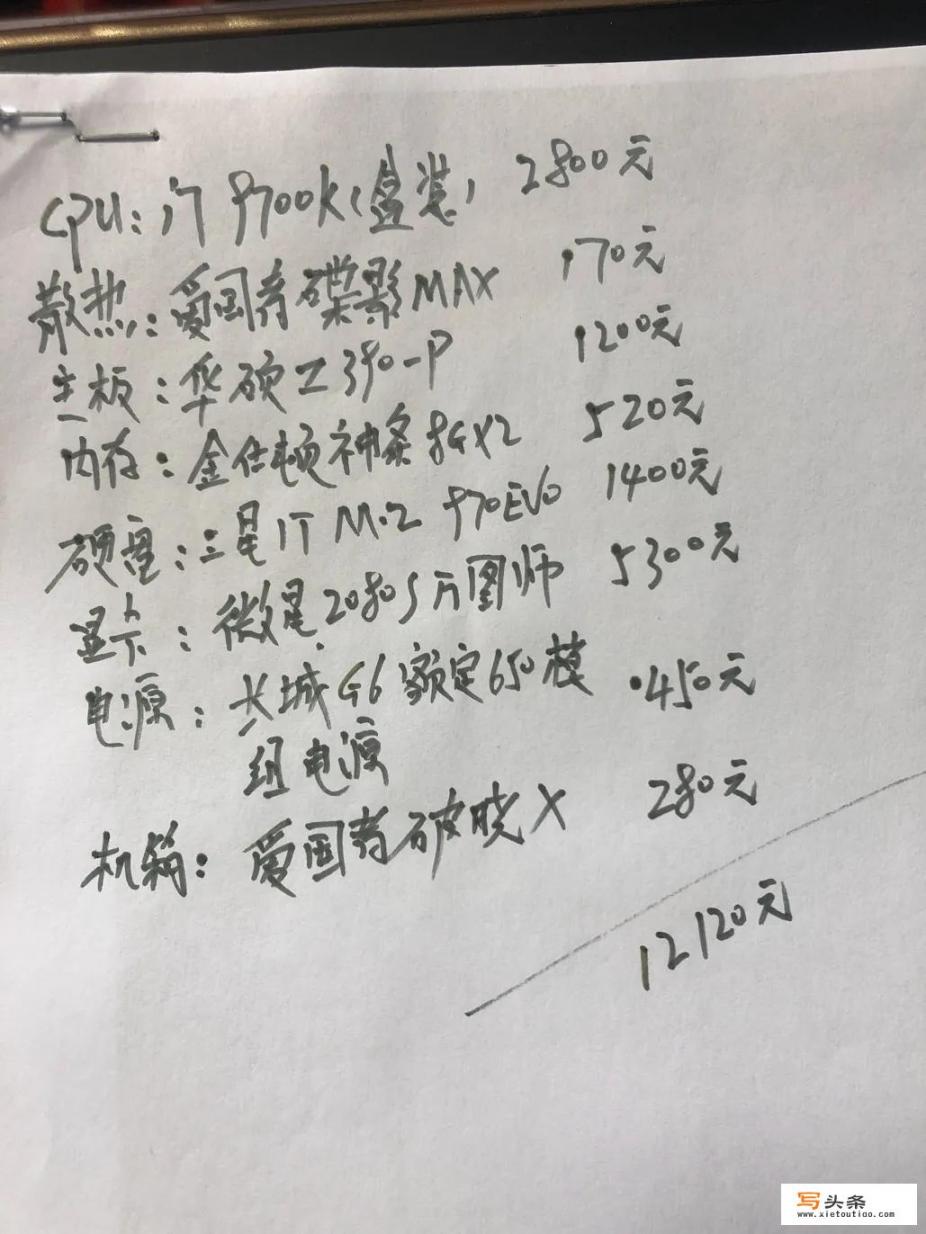 CPU: i7 9700K(盒装) 2800元
散热: 爱国者碟影MAX 170元
主板: 华硕Z390-P 1200元
内存: 金仕顿神条8G×2 520元
硬盘: 三星1T M.2 970EVO 1400元
显卡: 微星2080S万图师 5300元
电源: 长城G6额定650模 450元
组电源
机箱: 爱国者破晓X 280元
12120元
写头条
www.xietoutiao.com